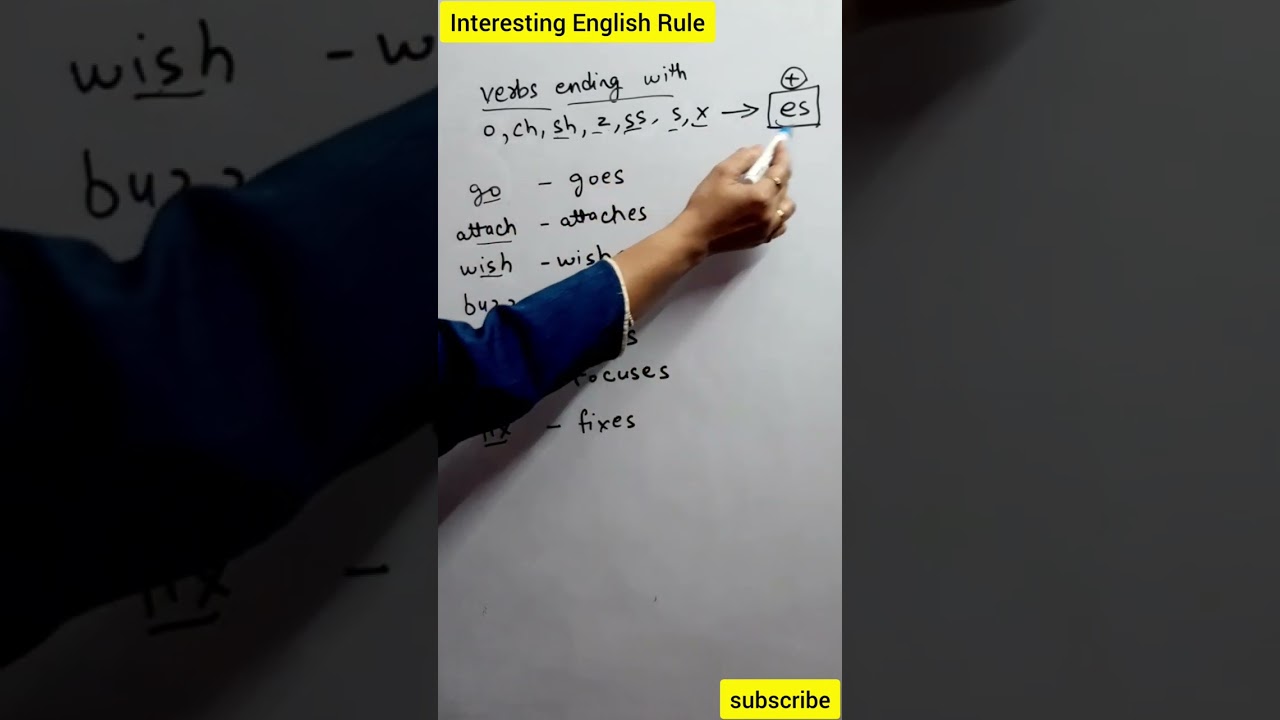 Interesting English Rule
verbs ending with
o, ch, sh, z, ss, s, x → + es
go - goes
attach - attaches
wish - wish
buzz
focuses
fix - fixes
subscribe